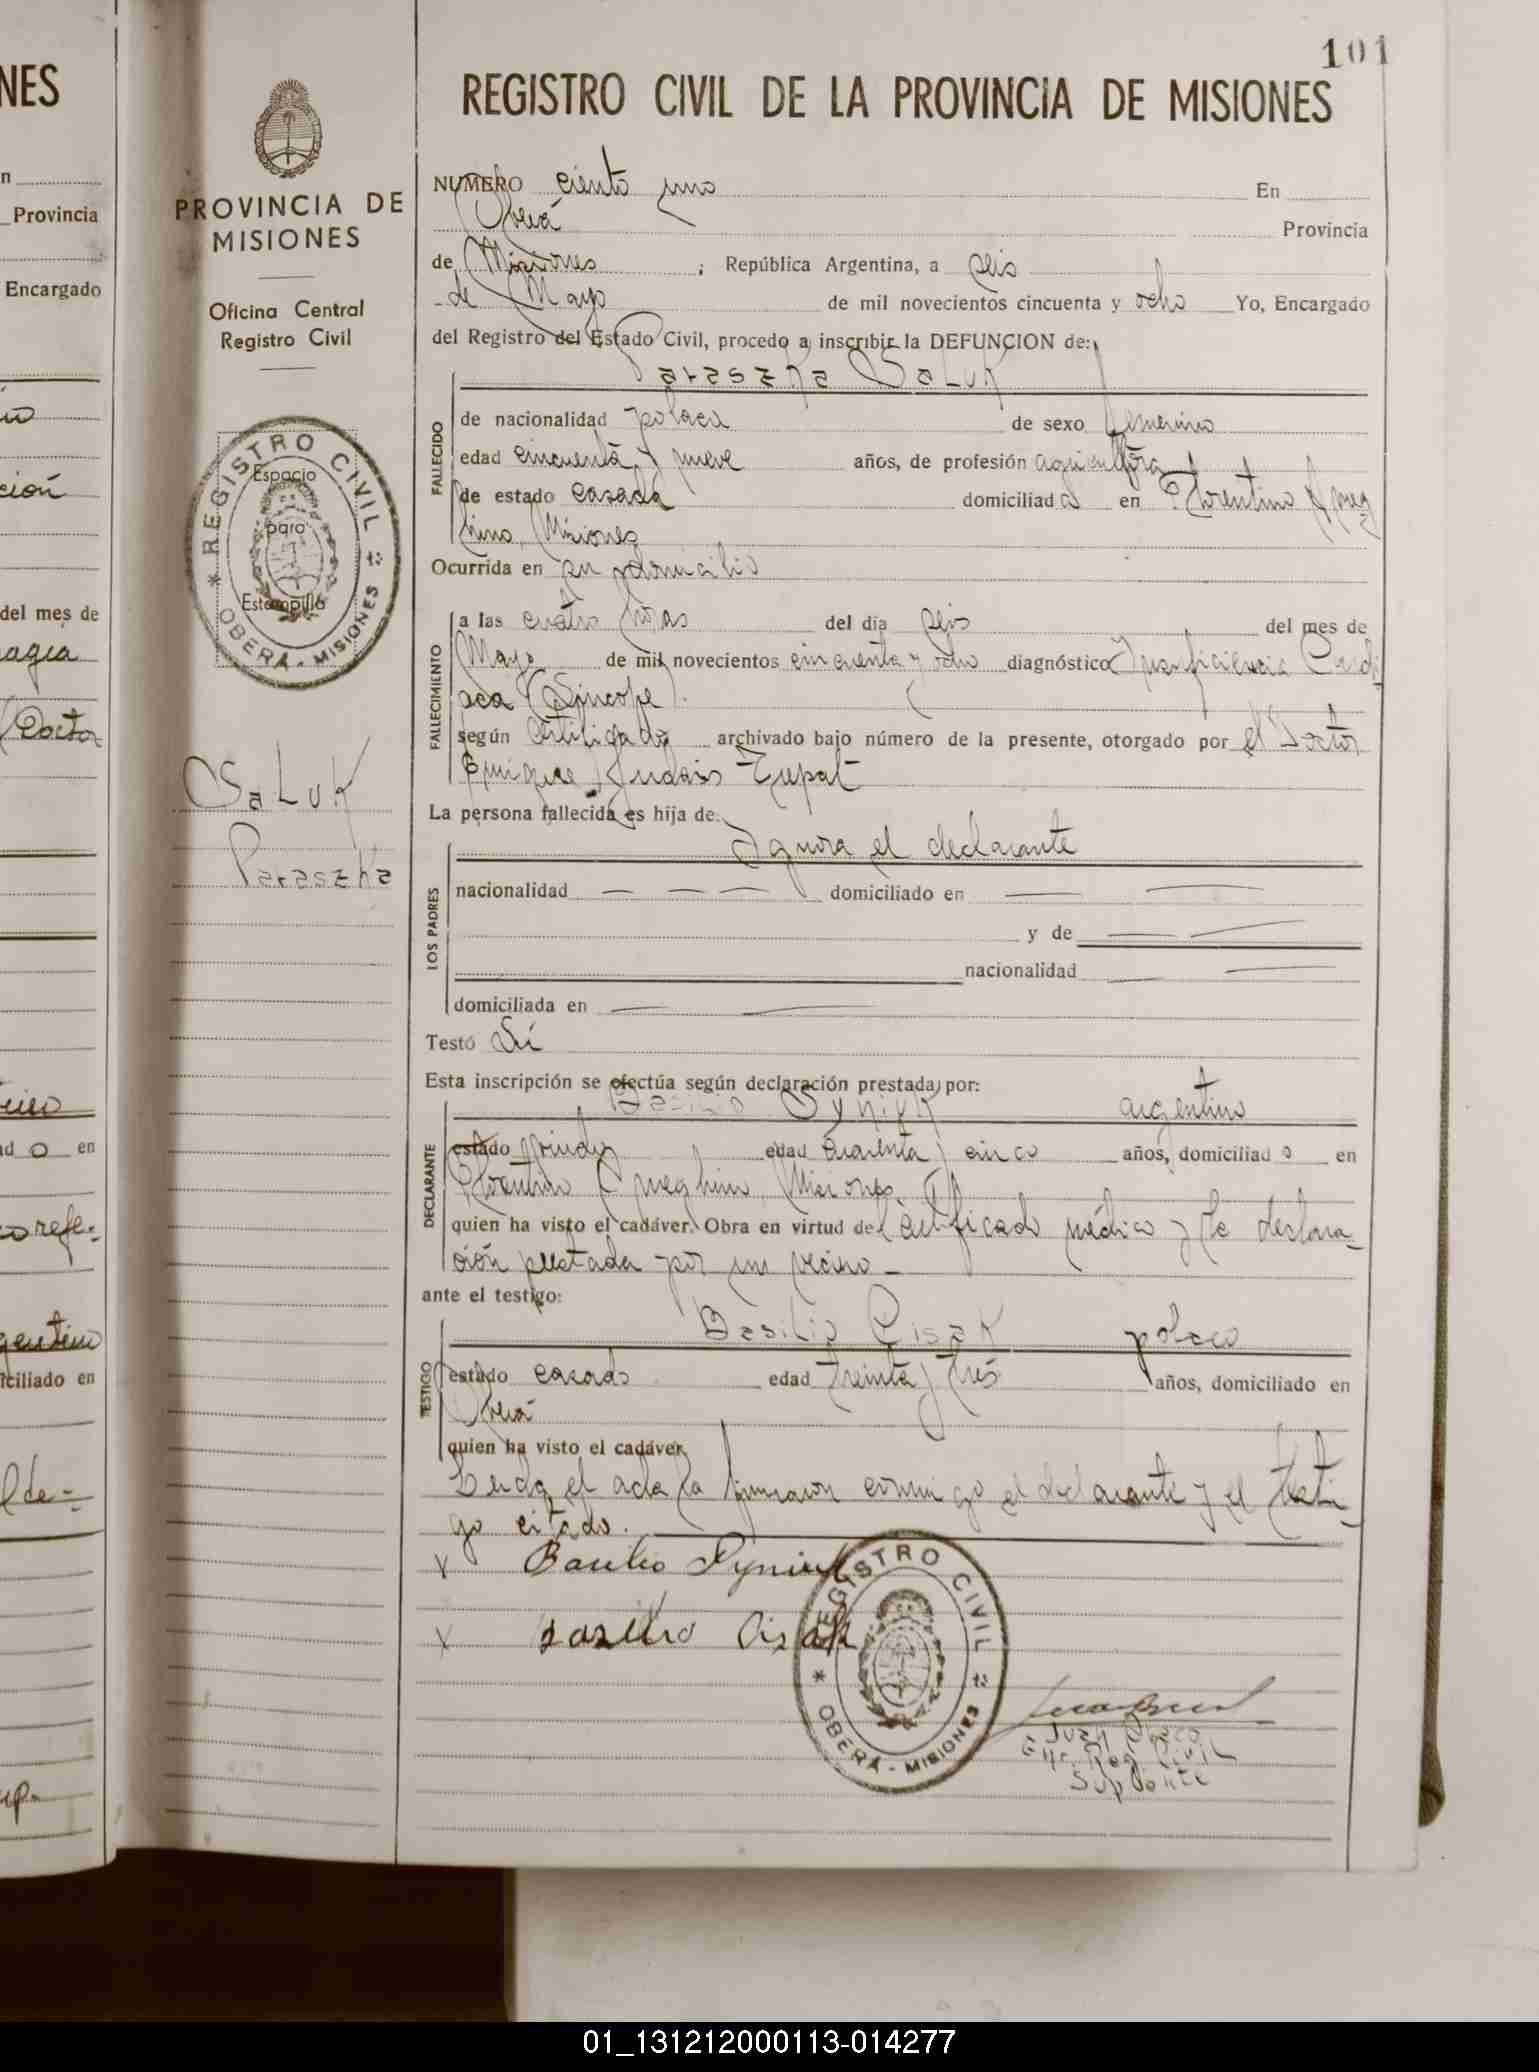 101
REGISTRO CIVIL DE LA PROVINCIA DE MISIONES
NUMERO ciento uno En
Oberá Provincia
de Misiones ; República Argentina, a seis
de Mayo de mil novecientos cincuenta y ocho Yo, Encargado
del Registro del Estado Civil, procedo a inscribir la DEFUNCION de:
Paraszka Saluk
FALLECIDO
de nacionalidad polaca de sexo femenino
edad cincuenta y nueve años, de profesión agricultora
de estado casada domiciliada en Florentino Ameg
hino, Misiones
Ocurrida en su domicilio
FALLECIMIENTO
a las cuatro horas del día seis del mes de
Mayo de mil novecientos cincuenta y ocho diagnóstico Insuficiencia Cardi
aca (Síncope).
según certificado archivado bajo número de la presente, otorgado por el Doctor
Enrique
La persona fallecida es hija de:
Ignora el declarante
LOS PADRES
nacionalidad — — — domiciliado en — —
y de — —
nacionalidad —
domiciliada en — —
Testó Sí
Esta inscripción se efectúa según declaración prestada por:
Basilio Syniuk argentino
DECLARANTE
estado viudo edad cuarenta y cinco años, domiciliado en
Florentino Ameghino, Misiones.
quien ha visto el cadáver. Obra en virtud del certificado médico y la declara_
ción prestada por un vecino_
ante el testigo:
Basilio Cisak polaco
TESTIGO
estado casado edad treinta y tres años, domiciliado en
Oberá
quien ha visto el cadáver
Leída el acta la firmaron conmigo el declarante y el testi_
go citado.
x Basilio Syniuk
x Bazilio Cisak
REGISTRO CIVIL
* OBERÁ - MISIONES
Juan
Enc. Reg. Civil
Suplente
PROVINCIA DE
MISIONES
Oficina Central
Registro Civil
* REGISTRO CIVIL
OBERÁ - MISIONES
Espacio
para
Estampilla
Saluk
Paraszka
NES
n
Provincia
Encargado
ción
del mes de
Doctor
ad o en
refe-
gentino
iciliado en
de-
01_131212000113-014277